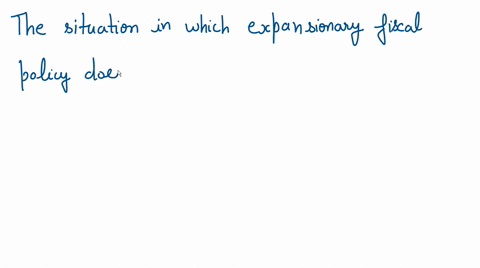 The situation in which expansionary fiscal
policy doe